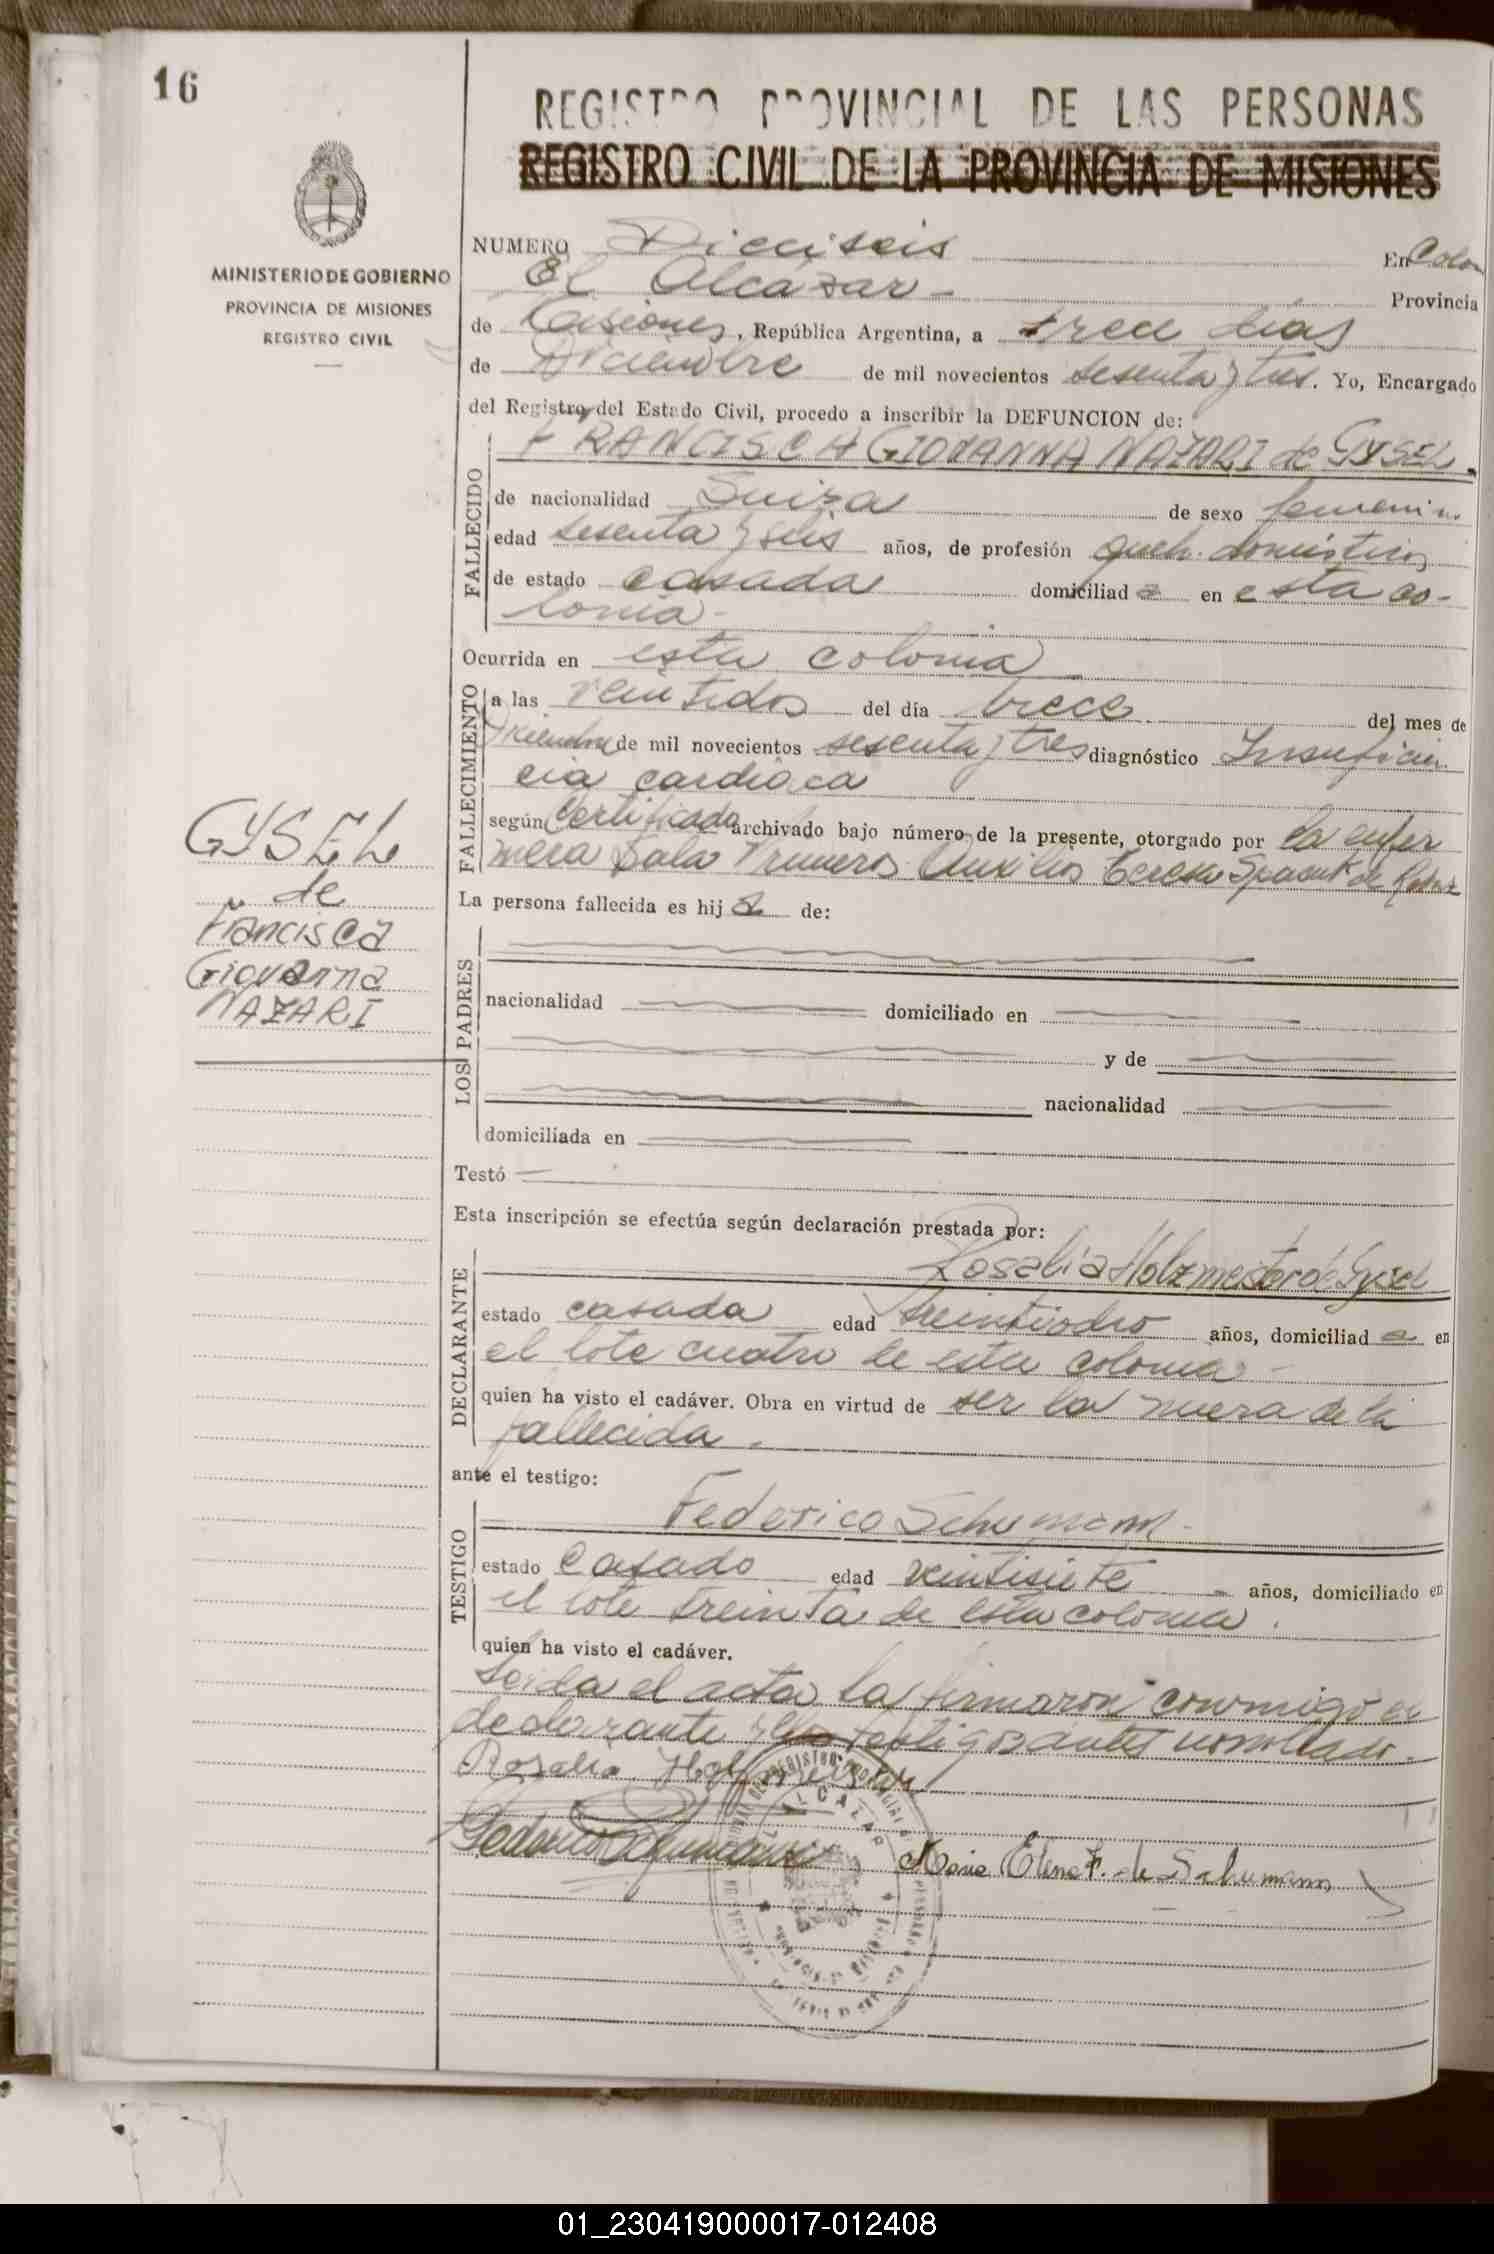 16
REGISTRO PROVINCIAL DE LAS PERSONAS
REGISTRO CIVIL DE LA PROVINCIA DE MISIONES
MINISTERIO DE GOBIERNO
PROVINCIA DE MISIONES
REGISTRO CIVIL
NUMERO Dieciseis En Colon
El Alcázar - Provincia
de Misiones, República Argentina, a trece dias
de Diciembre de mil novecientos sesenta y tres. Yo, Encargado
del Registro del Estado Civil, procedo a inscribir la DEFUNCION de:
FRANCISCA GIOVANNA NAZARI de GYSEL.
FALLECIDO
de nacionalidad Suiza de sexo femenin
edad sesenta y seis años, de profesión queh. domésticos
de estado casada domiciliad a en esta co-
lonia -
Ocurrida en esta colonia
FALLECIMIENTO
a las veintidos del día trece del mes de
Diciembre de mil novecientos sesenta y tres diagnóstico Insuficien
cia cardiaca
según Certificado archivado bajo número de la presente, otorgado por la enfer
mera Sala Primeros Auxilios Teresa de
La persona fallecida es hij a de:
LOS PADRES
nacionalidad domiciliado en
y de
nacionalidad
domiciliada en
Testó
Esta inscripción se efectúa según declaración prestada por:
Rosalia Holzmeister de Gysel
DECLARANTE
estado casada edad treintiocho años, domiciliad a en
el lote cuatro de esta colonia -
quien ha visto el cadáver. Obra en virtud de ser la nuera de la
fallecida.
ante el testigo:
Federico Schumann -
TESTIGO
estado Casado edad veintisiete años, domiciliado en
el lote treinta de esta colonia.
quien ha visto el cadáver.
Leida el acta la firmaron conmigo el
declarante y testigos antes nombrado.
Rosalia Holzmeister
Federico Schumann María Elena F. de Schumann
GYSEL
de
Francisca
Giovanna
NAZARI
ALCAZAR
01_230419000017-012408